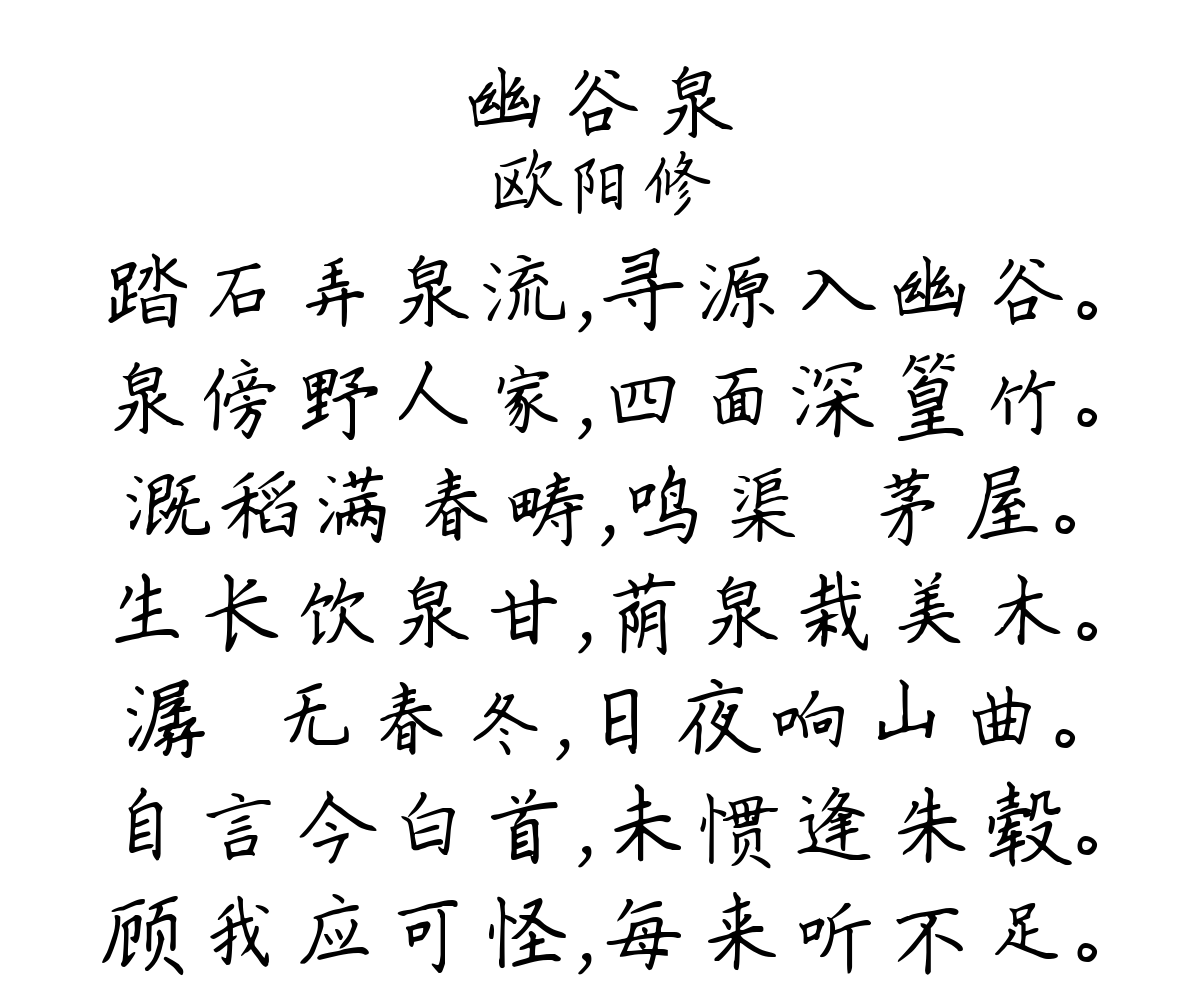 幽谷泉
欧阳修
踏石弄泉流,寻源入幽谷。
泉傍野人家,四面深篁竹。
溉稻满春畴,鸣渠 茅屋。
生长饮泉甘,荫泉栽美木。
潺 无春冬,日夜响山曲。
自言今白首,未惯逢朱毂。
顾我应可怪,每来听不足。